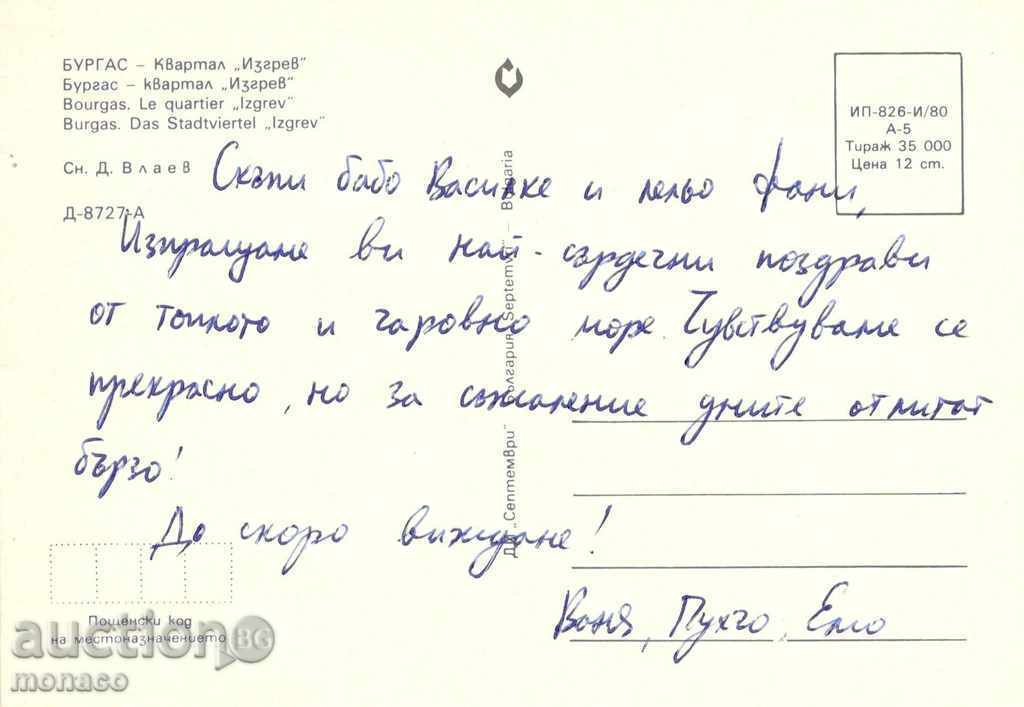 БУРГАС – Квартал „Изгрев"
Бургас – квартал „Изгрев"
Bourgas. Le quartier „Izgrev"
Burgas. Das Stadtviertel „Izgrev"
Сн. Д. Влаев
Д-8727-А
ИП-826-И/80
А-5
Тираж 35 000
Цена 12 ст.
Скъпи бабо Василке и лельо Фани,
Изпращаме ви най-сърдечни поздрави
от топлото и чаровно море. Чувствуваме се
прекрасно, но за съжаление дните отлитат
бързо!
До скоро виждане!
Ваня, Пухчо, Емо
ДИ „Септември" България, Septemvri – Bulgaria
Пощенски код
на местоназначението
auction BG
monaco